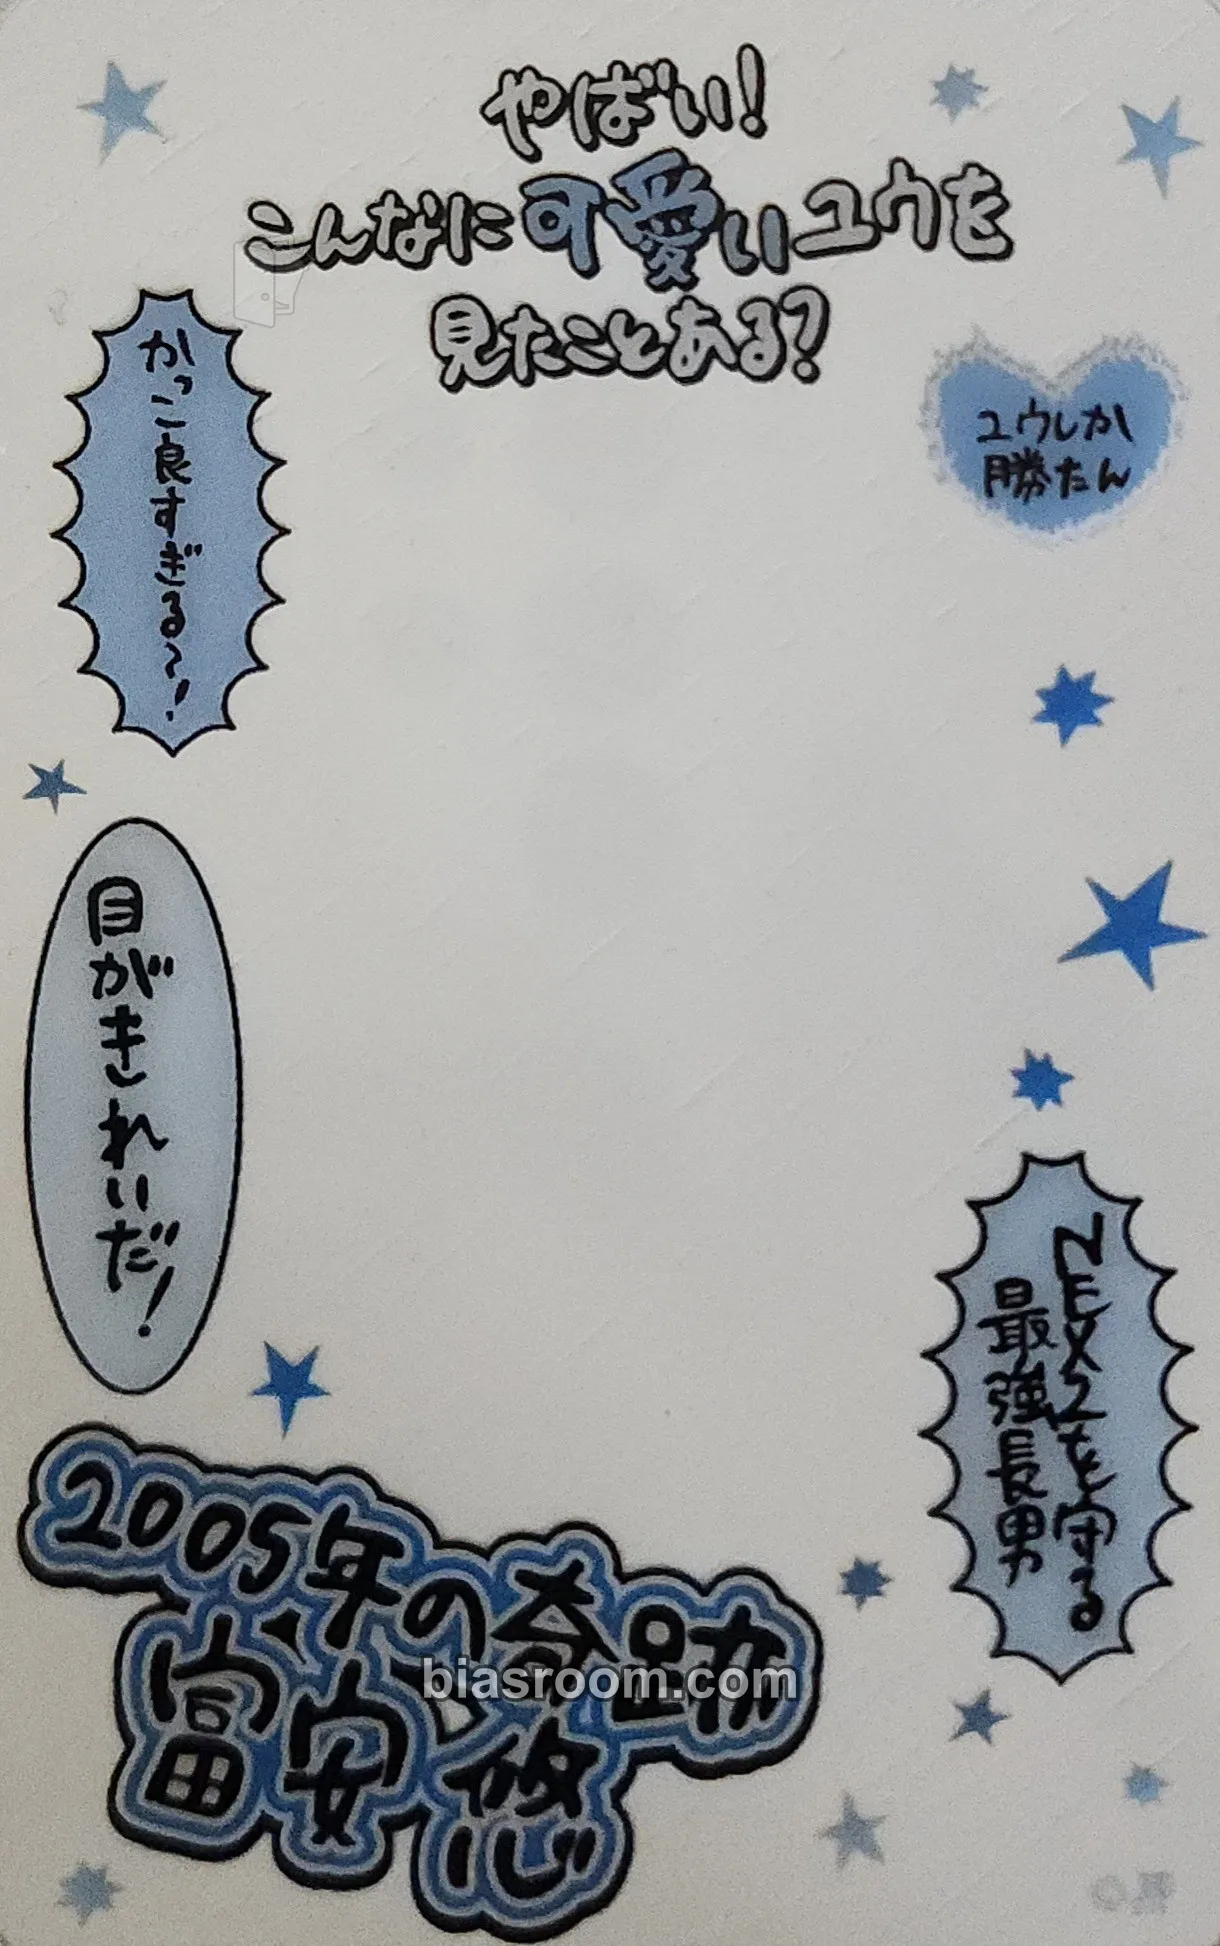 やばい!
こんなに可愛いユウを
見たことある?
かっこ良すぎる〜!
ユウしか
勝たん
目がきれいだ!
NEXZを守る
最強長男
2005年の奇跡
富安悠
biasroom.com